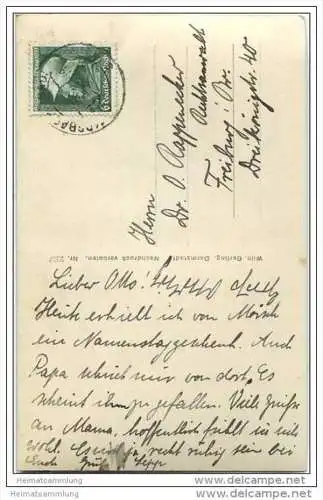 Herrn
Dr. O. Rappenecker
Rechtsanwalt
Freiburg i. Br.
Dreikönigstr. 40
Wilh. Gerling, Darmstadt Nachdruck verboten. Nr.
Lieber Otto!
Heute erhielt ich von
ein Namenstaggeschenk. Auch
Papa schrieb mir von dort. Es
scheint ihm zu gefallen. Viele Grüße
an Mama, hoffentlich fühlt
wohl. ja recht ruhig sein bei
Euch. Gruß Sepp
© Heimatsammlung
www.Heimatsammlung.de